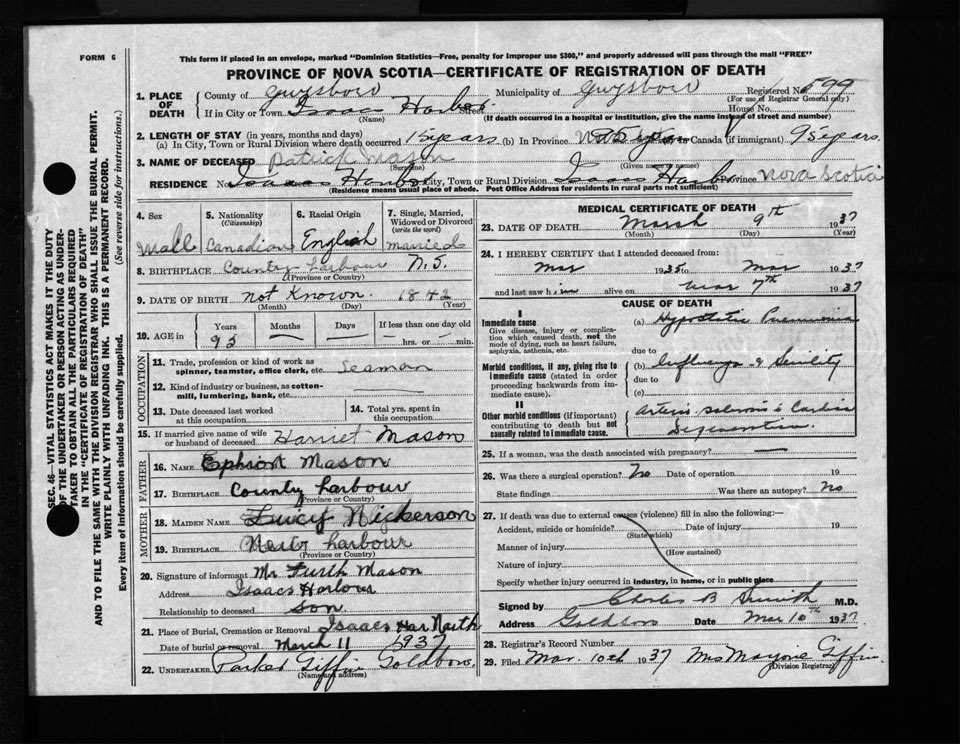 FORM 6
This form if placed in an envelope, marked "Dominion Statistics—Free, penalty for improper use $300," and properly addressed will pass through the mail "FREE"
PROVINCE OF NOVA SCOTIA—CERTIFICATE OF REGISTRATION OF DEATH
1. PLACE OF DEATH County of Guysboro Municipality of Guysboro Registered No. 599
(For use of Registrar General only)
If in City or Town Isaacs Harbor Street House No.
(Name) (If death occurred in a hospital or institution, give the name instead of street and number)
2. LENGTH OF STAY (in years, months and days)
(a) In City, Town or Rural Division where death occurred 15 years (b) In Province (c) In Canada (if immigrant) 95 years.
3. NAME OF DECEASED Patrick Mason
(Surname) (Given or Christian names)
RESIDENCE No. Isaacs Harbor City, Town or Rural Division Isaacs Harbor Province Nova Scotia
(Residence means usual place of abode. Post Office Address for residents in rural parts not sufficient)
SEC. 46—VITAL STATISTICS ACT MAKES IT THE DUTY
OF THE UNDERTAKER OR PERSON ACTING AS UNDER-
TAKER TO OBTAIN ALL THE PARTICULARS REQUIRED
IN THE "CERTIFICATE OF REGISTRATION OF DEATH"
AND TO FILE THE SAME WITH THE DIVISION REGISTRAR WHO SHALL ISSUE THE BURIAL PERMIT.
WRITE PLAINLY WITH UNFADING INK. THIS IS A PERMANENT RECORD.
Every item of information should be carefully supplied. (See reverse side for instructions.)
4. Sex 5. Nationality (Citizenship) 6. Racial Origin 7. Single, Married, Widowed or Divorced (write the word)
Male Canadian English married
8. BIRTHPLACE Country Harbour N.S.
(Province or Country)
9. DATE OF BIRTH not Known. 1842
(Month) (Day) (Year)
10. AGE in Years Months Days If less than one day old
95 hrs. or min.
OCCUPATION
11. Trade, profession or kind of work as
spinner, teamster, office clerk, etc. Seaman
12. Kind of industry or business, as cotton-
mill, lumbering, bank, etc.
13. Date deceased last worked at this occupation 14. Total yrs. spent in this occupation
15. If married give name of wife or husband of deceased Harriet Mason
FATHER
16. NAME Ephriat Mason
17. BIRTHPLACE Country harbour
(Province or Country)
MOTHER
18. MAIDEN NAME Luicy Nickerson
19. BIRTHPLACE harbour
(Province or Country)
20. Signature of informant Mr Furth Mason
Address Isaacs Harbour
Relationship to deceased Son
21. Place of Burial, Cremation or Removal Isaacs Har North
Date of burial or removal March 11 1937
22. UNDERTAKER Parker Giffin Goldboro.
(Name and address)
MEDICAL CERTIFICATE OF DEATH
23. DATE OF DEATH March 9th 1937
(Month) (Day) (Year)
24. I HEREBY CERTIFY that I attended deceased from:
Mar 1935 to Mar 1937
and last saw him alive on Mar 7th 1937
CAUSE OF DEATH
I
Immediate cause (a) Hypostatic Pneumonia
Give disease, injury or complica-
tion which caused death, not the
mode of dying, such as heart failure,
asphyxia, asthenia, etc.
due to
Morbid conditions, if any, giving rise to
immediate cause (stated in order
proceeding backwards from im-
mediate cause).
(b) Influenza & Senility
due to
(c)
II
Other morbid conditions (if important)
contributing to death but not
causally related to immediate cause.
Arterio sclerosis & Cardiac
Degeneration.
25. If a woman, was the death associated with pregnancy?
26. Was there a surgical operation? No Date of operation 19
State findings Was there an autopsy? No
27. If death was due to external causes (violence) fill in also the following:—
Accident, suicide or homicide? Date of injury 19
(State which)
Manner of injury
(How sustained)
Nature of injury
Specify whether injury occurred in industry, in home, or in public place
Signed by Charles B Smith M.D.
Address Goldboro Date Mar 10th 1937
28. Registrar's Record Number
29. Filed Mar. 10th 1937 Mrs Giffin.
(Division Registrar)